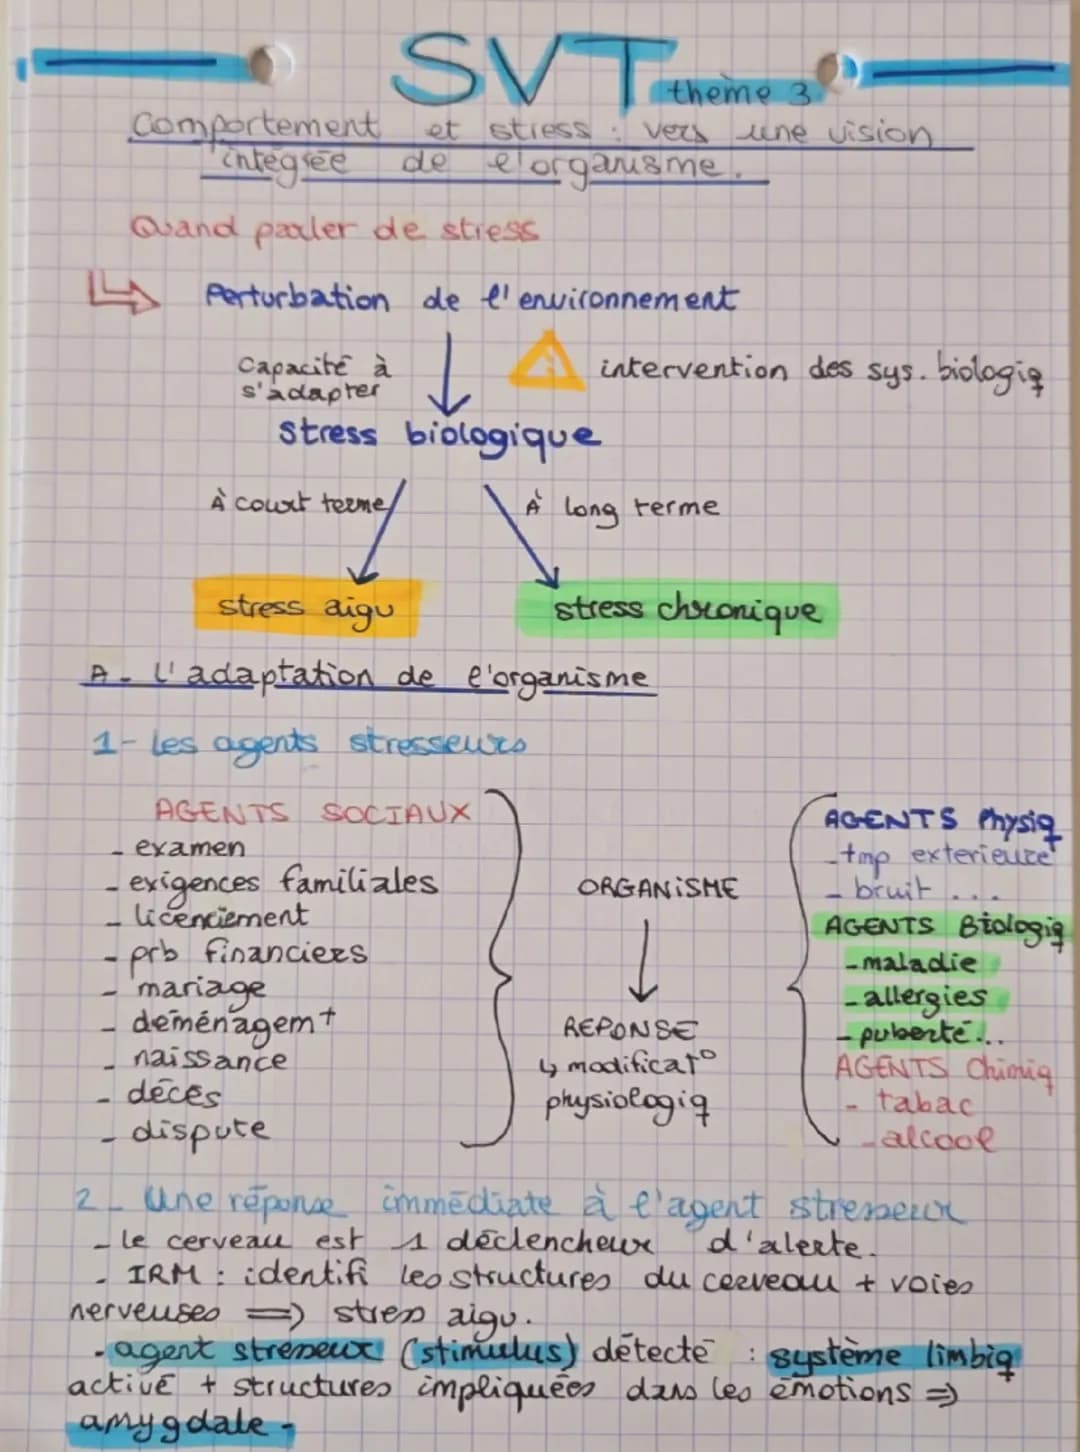 SVT thème 3
Comportement et stress : vers une vision
intégrée de l'organisme.
Quand parler de stress
↳ Perturbation de l'environnement
Capacité à
s'adapter
⚠ intervention des sys. biologiq
Stress biologique
À court terme
À long terme
stress aigu
stress chronique
A - L'adaptation de l'organisme
1- Les agents stresseurs
AGENTS SOCIAUX
- examen
- exigences familiales
- licenciement
- prb financiers
- mariage
- déménagemt
- naissance
- décès
- dispute
ORGANISME
REPONSE
↳ modificat°
physiologiq
AGENTS Physiq
- tmp exterieure
- bruit ...
AGENTS Biologiq
- maladie
- allergies
- puberté...
AGENTS Chimiq
- tabac
- alcool
2 - Une réponse immédiate à l'agent stresseur
- le cerveau est 1 déclencheur d'alerte.
- IRM : identifi les structures du cerveau + voies
nerveuses => stress aigu.
- agent stresseur (stimulus) détecté : système limbiq
activé + structures impliquées dans les émotions =>
amygdale -